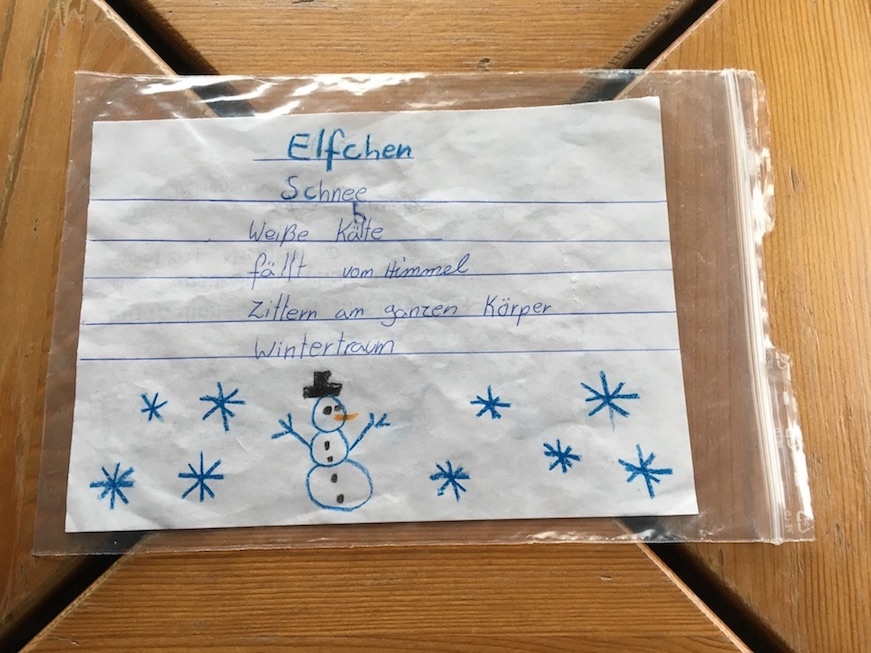 Elfchen
Schnee
Weiße Kälte
fällt vom Himmel
Zittern am ganzen Körper
Wintertraum